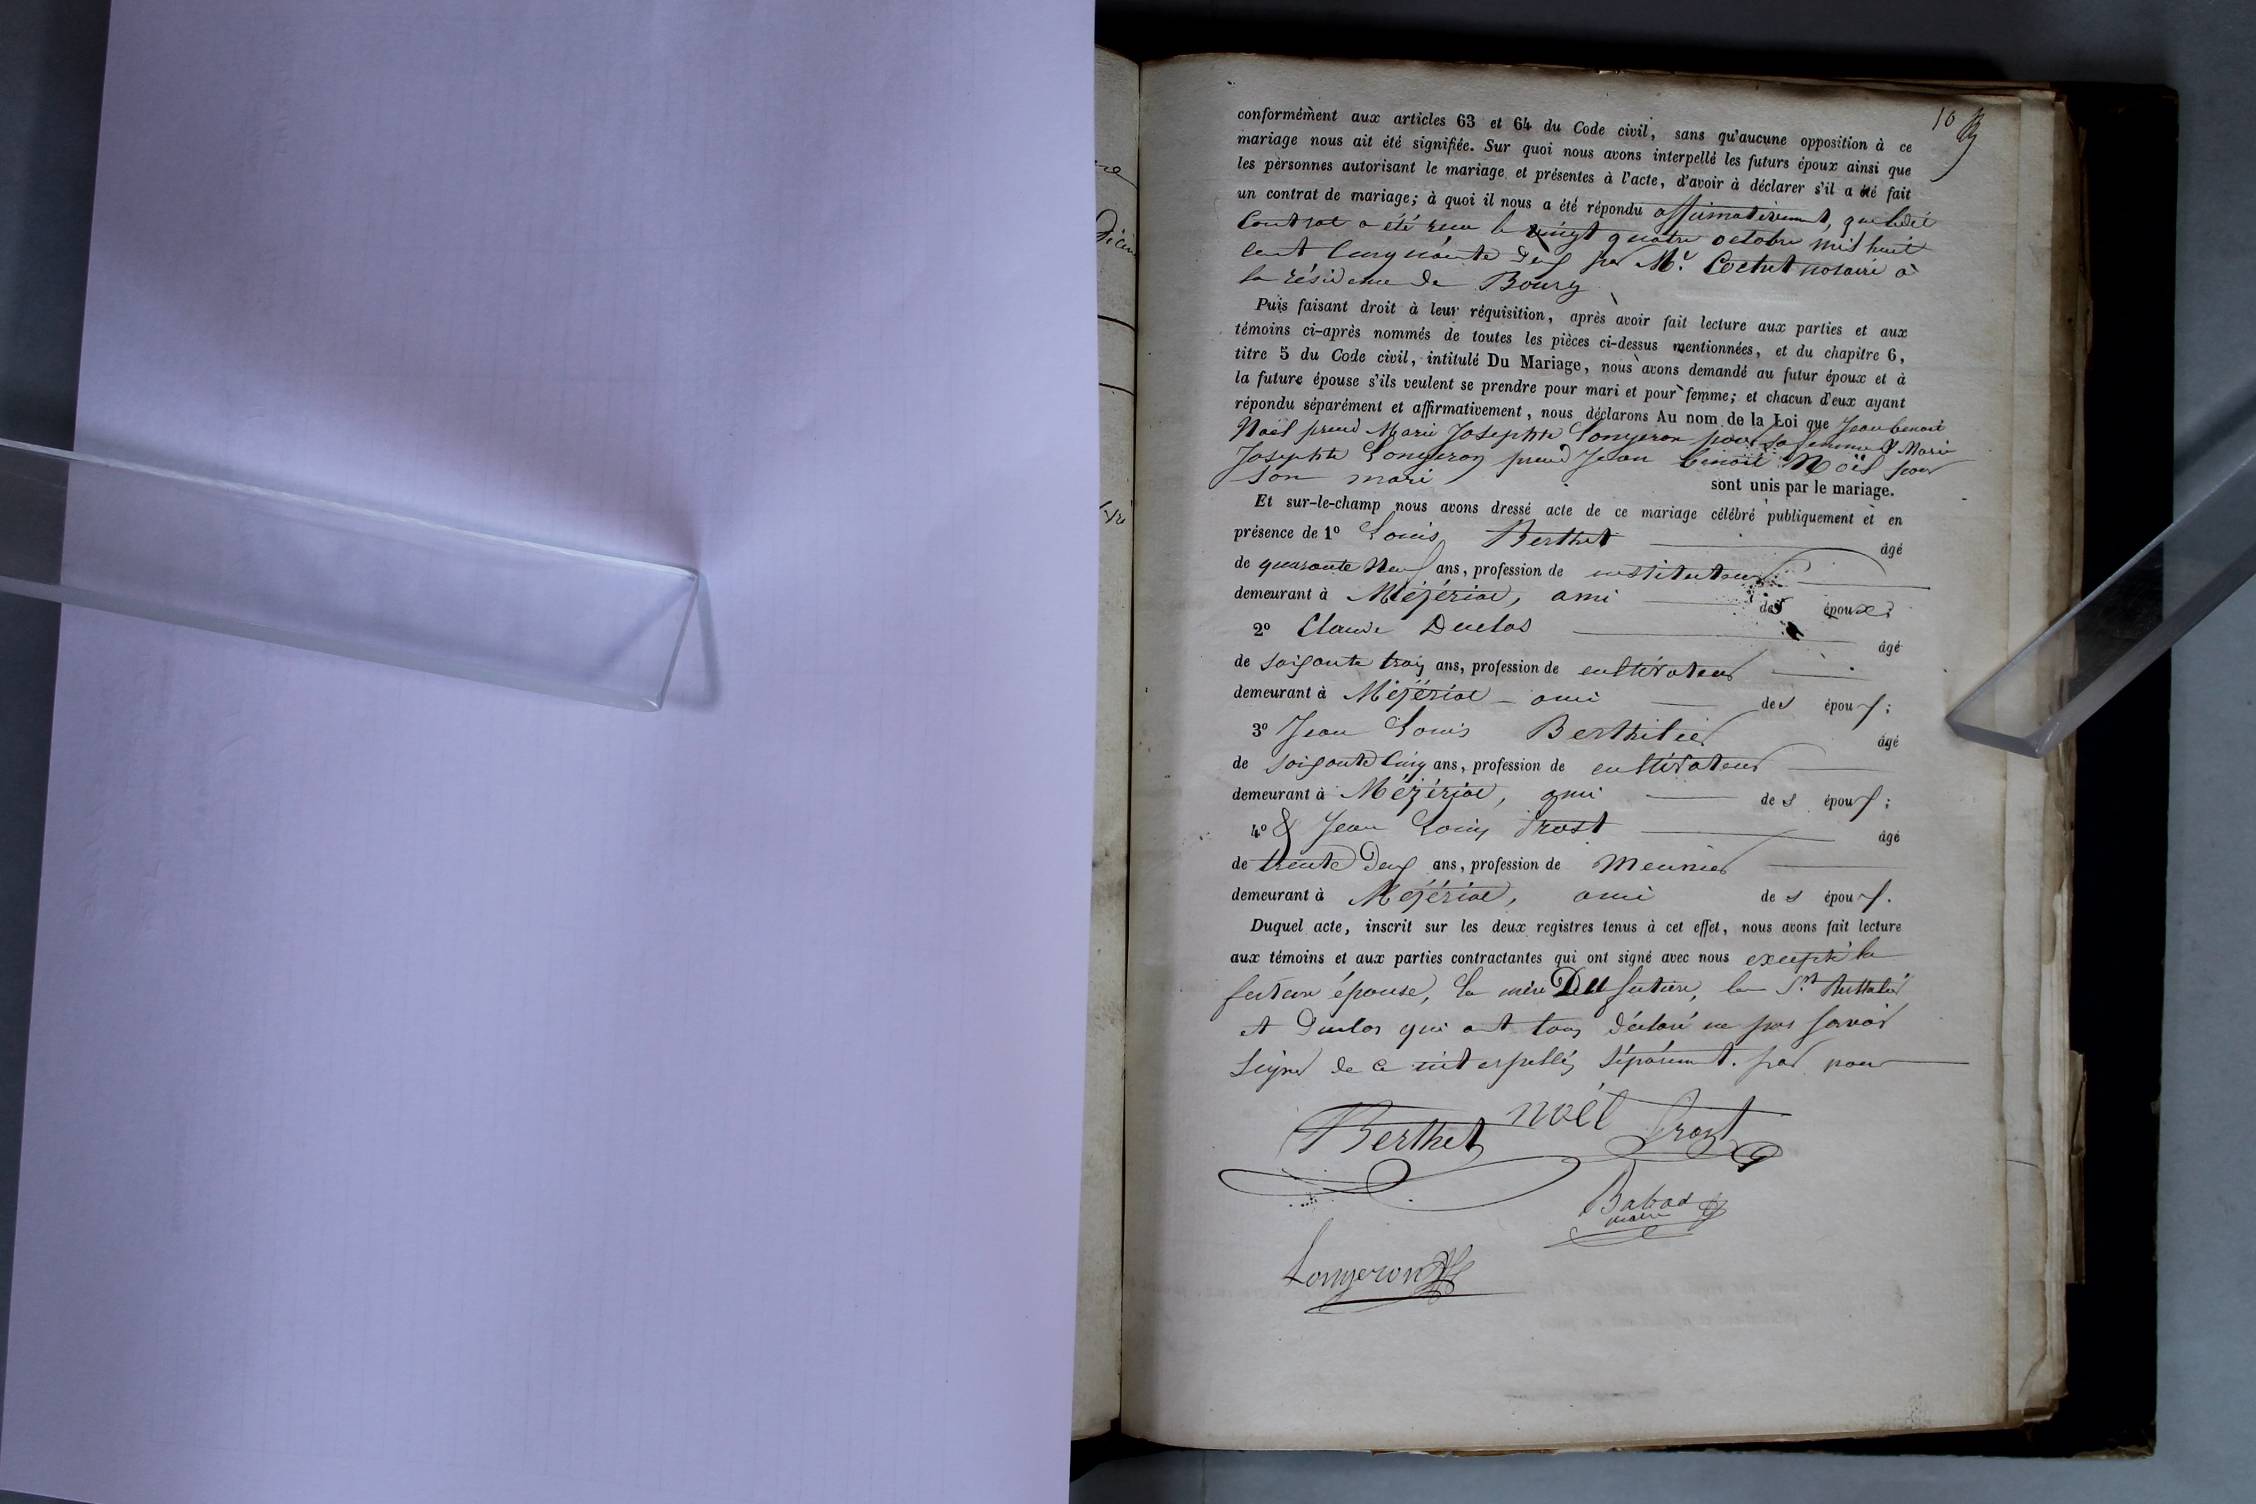 10
conformément aux articles 63 et 64 du Code civil, sans qu'aucune opposition à ce
mariage nous ait été signifiée. Sur quoi nous avons interpellé les futurs époux ainsi que
les personnes autorisant le mariage et présentes à l'acte, d'avoir à déclarer s'il a été fait
un contrat de mariage; à quoi il nous a été répondu affirmativement, que ledit
Contrat a été reçu le vingt quatre octobre mil huit
cent Cinquante deux par Me Cochet notaire à
la résidence de Bourg
Puis faisant droit à leur réquisition, après avoir fait lecture aux parties et aux
témoins ci-après nommés de toutes les pièces ci-dessus mentionnées, et du chapitre 6,
titre 5 du Code civil, intitulé Du Mariage, nous avons demandé au futur époux et à
la future épouse s'ils veulent se prendre pour mari et pour femme; et chacun d'eux ayant
répondu séparément et affirmativement, nous déclarons Au nom de la Loi que Jean benoit
Noël prend Marie Josephte Longeron pour sa femme & Marie
Josephte Longeron prend Jean benoit Noël pour
son mari sont unis par le mariage.
Et sur-le-champ nous avons dressé acte de ce mariage célébré publiquement et en
présence de 1º Louis Berthet âgé
de quarante Neuf ans, profession de instituteur
demeurant à Mézériat, ami des époux;
2º Claude Duclos âgé
de soixante trois ans, profession de cultivateur
demeurant à Mézériat - ami des époux;
3º Jean Louis Berthilier âgé
de soixante Cinq ans, profession de cultivateur
demeurant à Mézériat, ami des époux;
4º & Jean Louis Prost âgé
de trente Deux ans, profession de Meunier
demeurant à Mézériat, ami des époux.
Duquel acte, inscrit sur les deux registres tenus à cet effet, nous avons fait lecture
aux témoins et aux parties contractantes qui ont signé avec nous excepté la
future épouse, la mère Du futur, les Srs
et Duclos qui ont tous déclaré ne pas savoir
signer de ce interpellés séparément. par nous
Berthet noël Prost
Babad
maire
Longeron